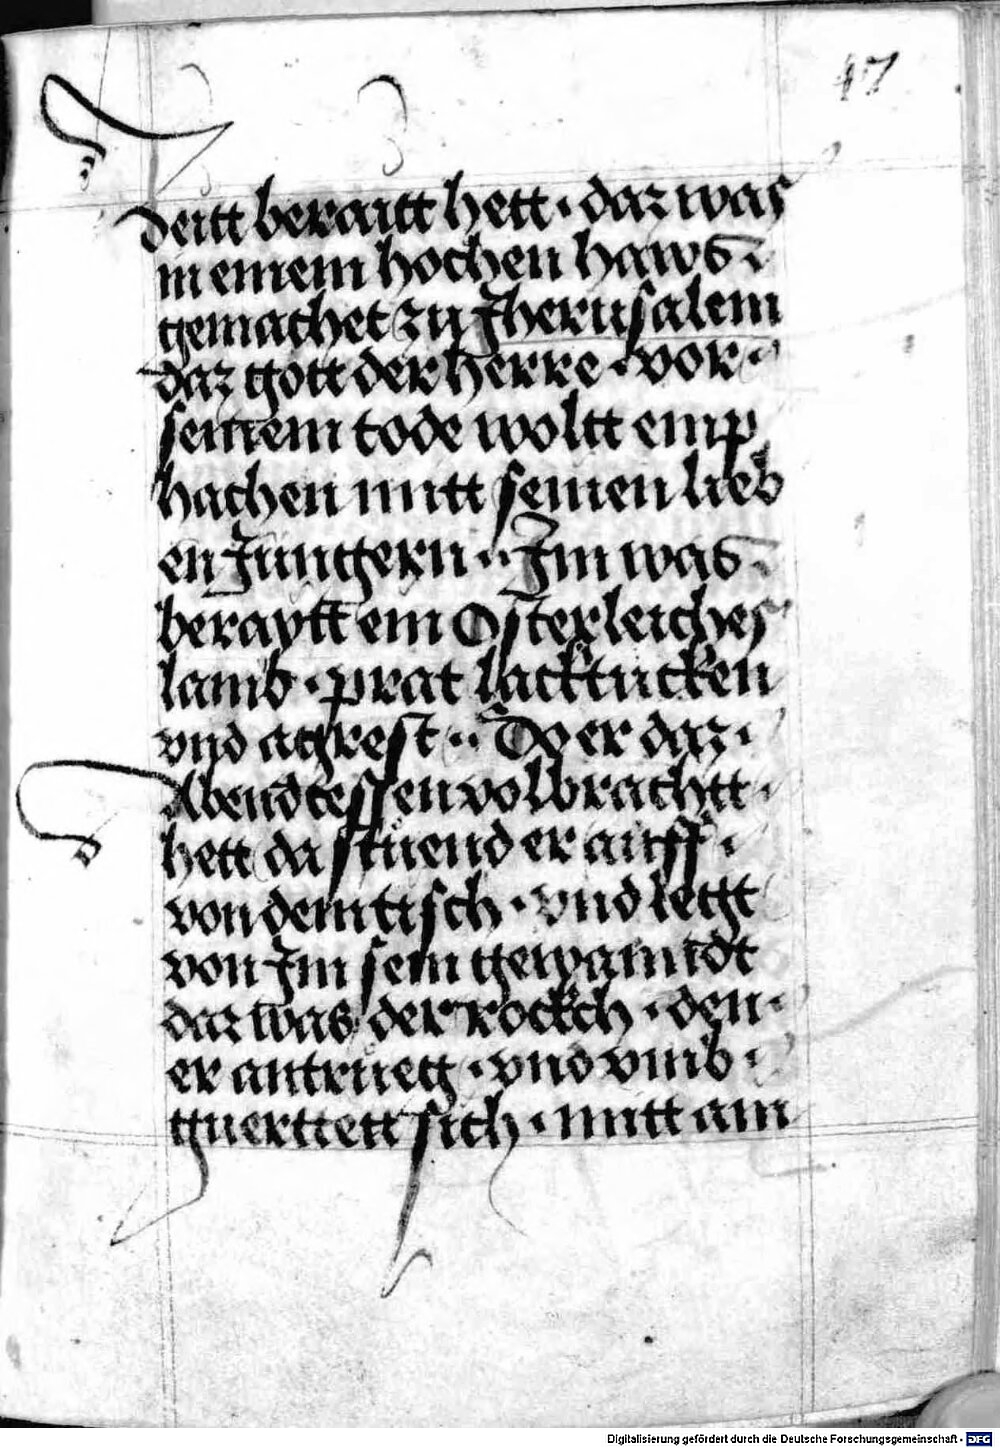 17
deitt beraitt hett · daz was
in einem hochen haws ·
gemachet zu Jherusalem
daz gott der herre · vor ·
seinem tode woltt emp
hachen mitt seinen lieb
en Jungern ·· Im was ·
beraytt ein Osterleiches
lamb · prat lacktucken
vnd agrest ·· Do er daz ·
Abendtessen volbrachtt ·
hett da stuend er auff ·
von dem tisch · vnd legt
von Im sein gewanndt
daz was der rockch · den ·
er antrueg · vnd vmb ·
guerttett sich · mitt am
Digitalisierung gefördert durch die Deutsche Forschungsgemeinschaft - DFG